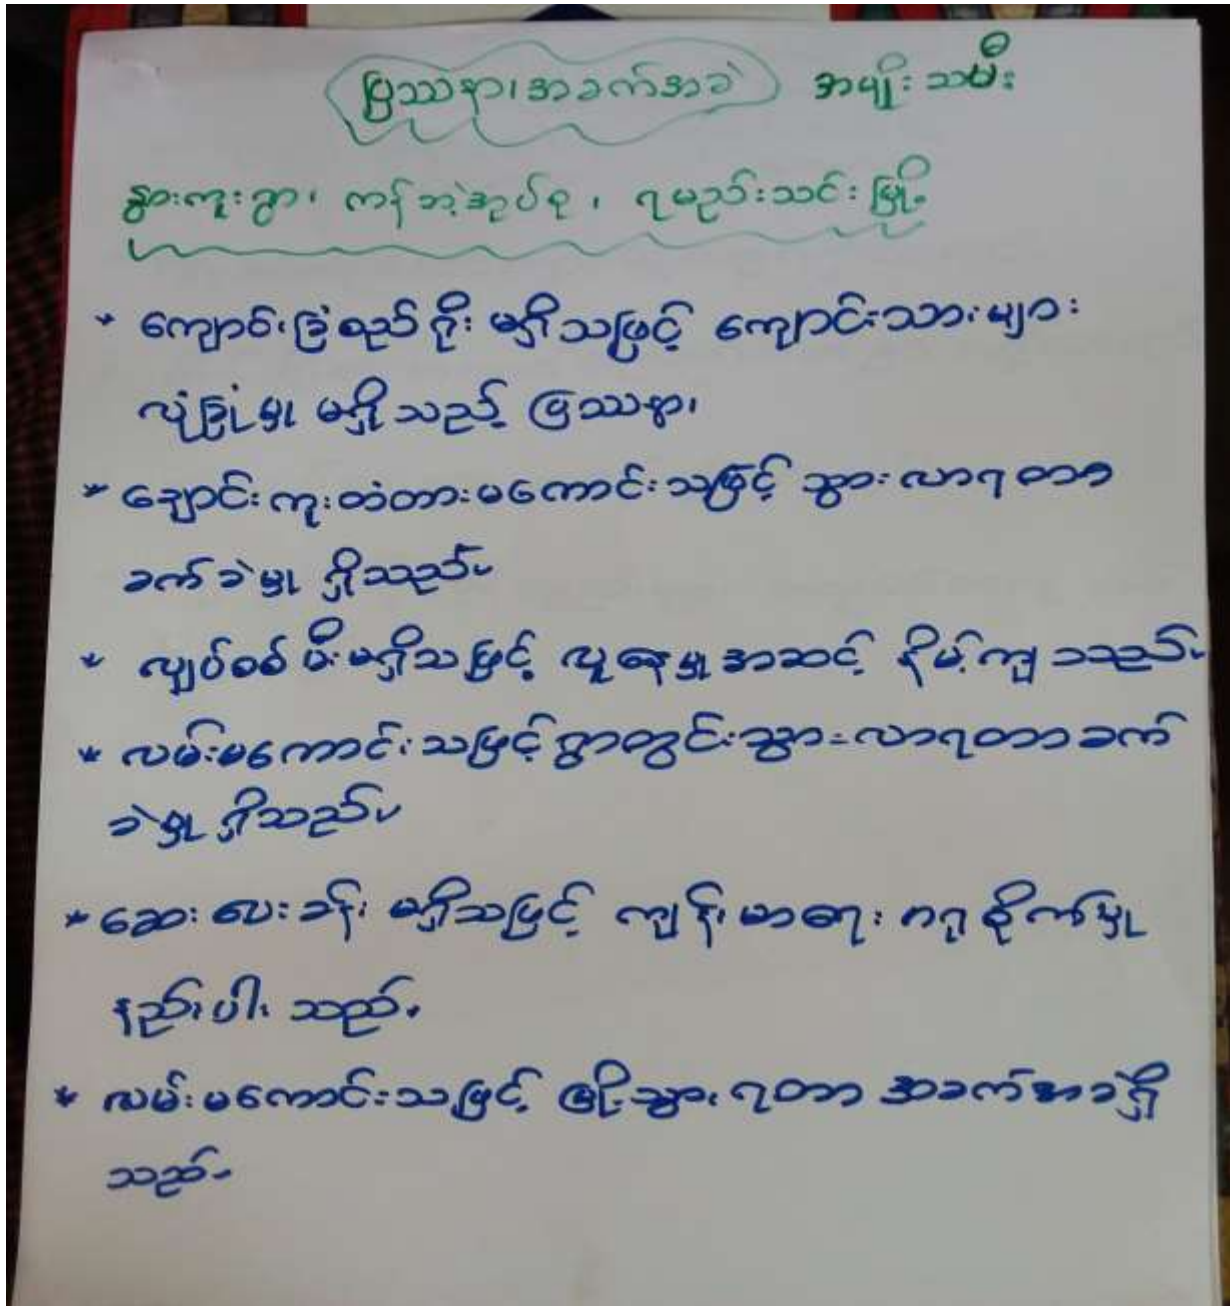 ပြဿနာ၊အခက်အခဲ အမျိုးသမီး
နွားကူးရွာ၊ ကန်ဘဲ့အုပ်စု၊ ရမည်းသင်းမြို့
* ကျောင်းခြံစည်ရိုး မရှိသဖြင့် ကျောင်းသားများ
လုံခြုံမှု မရှိသည့် ပြဿနာ၊
* ချောင်းကူးတံတားမကောင်းသဖြင့် သွားလာရတာ
ခက်ခဲမှု ရှိသည်။
* လျှပ်စစ်မီးမရှိသဖြင့် လူနေမှုအဆင့် နိမ့်ကျသည်။
* လမ်းမကောင်းသဖြင့် ရွာတွင်းသွားလာရတာခက်
ခဲမှု ရှိသည်။
* ဆေးပေးခန်း မရှိသဖြင့် ကျန်းမာရေး ဂရုစိုက်မှု
နည်းပါးသည်။
* လမ်းမကောင်းသဖြင့် မြို့သွားရတာ အခက်အခဲရှိ
သည်။